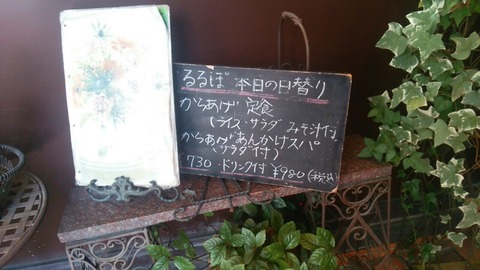 るるぽ 本日の日替り
からあげ 定食
(ライス・サラダ みそ汁付)
からあげあんかけスパ
(サラダ付)
730・ドリンク付 ¥980(税込)